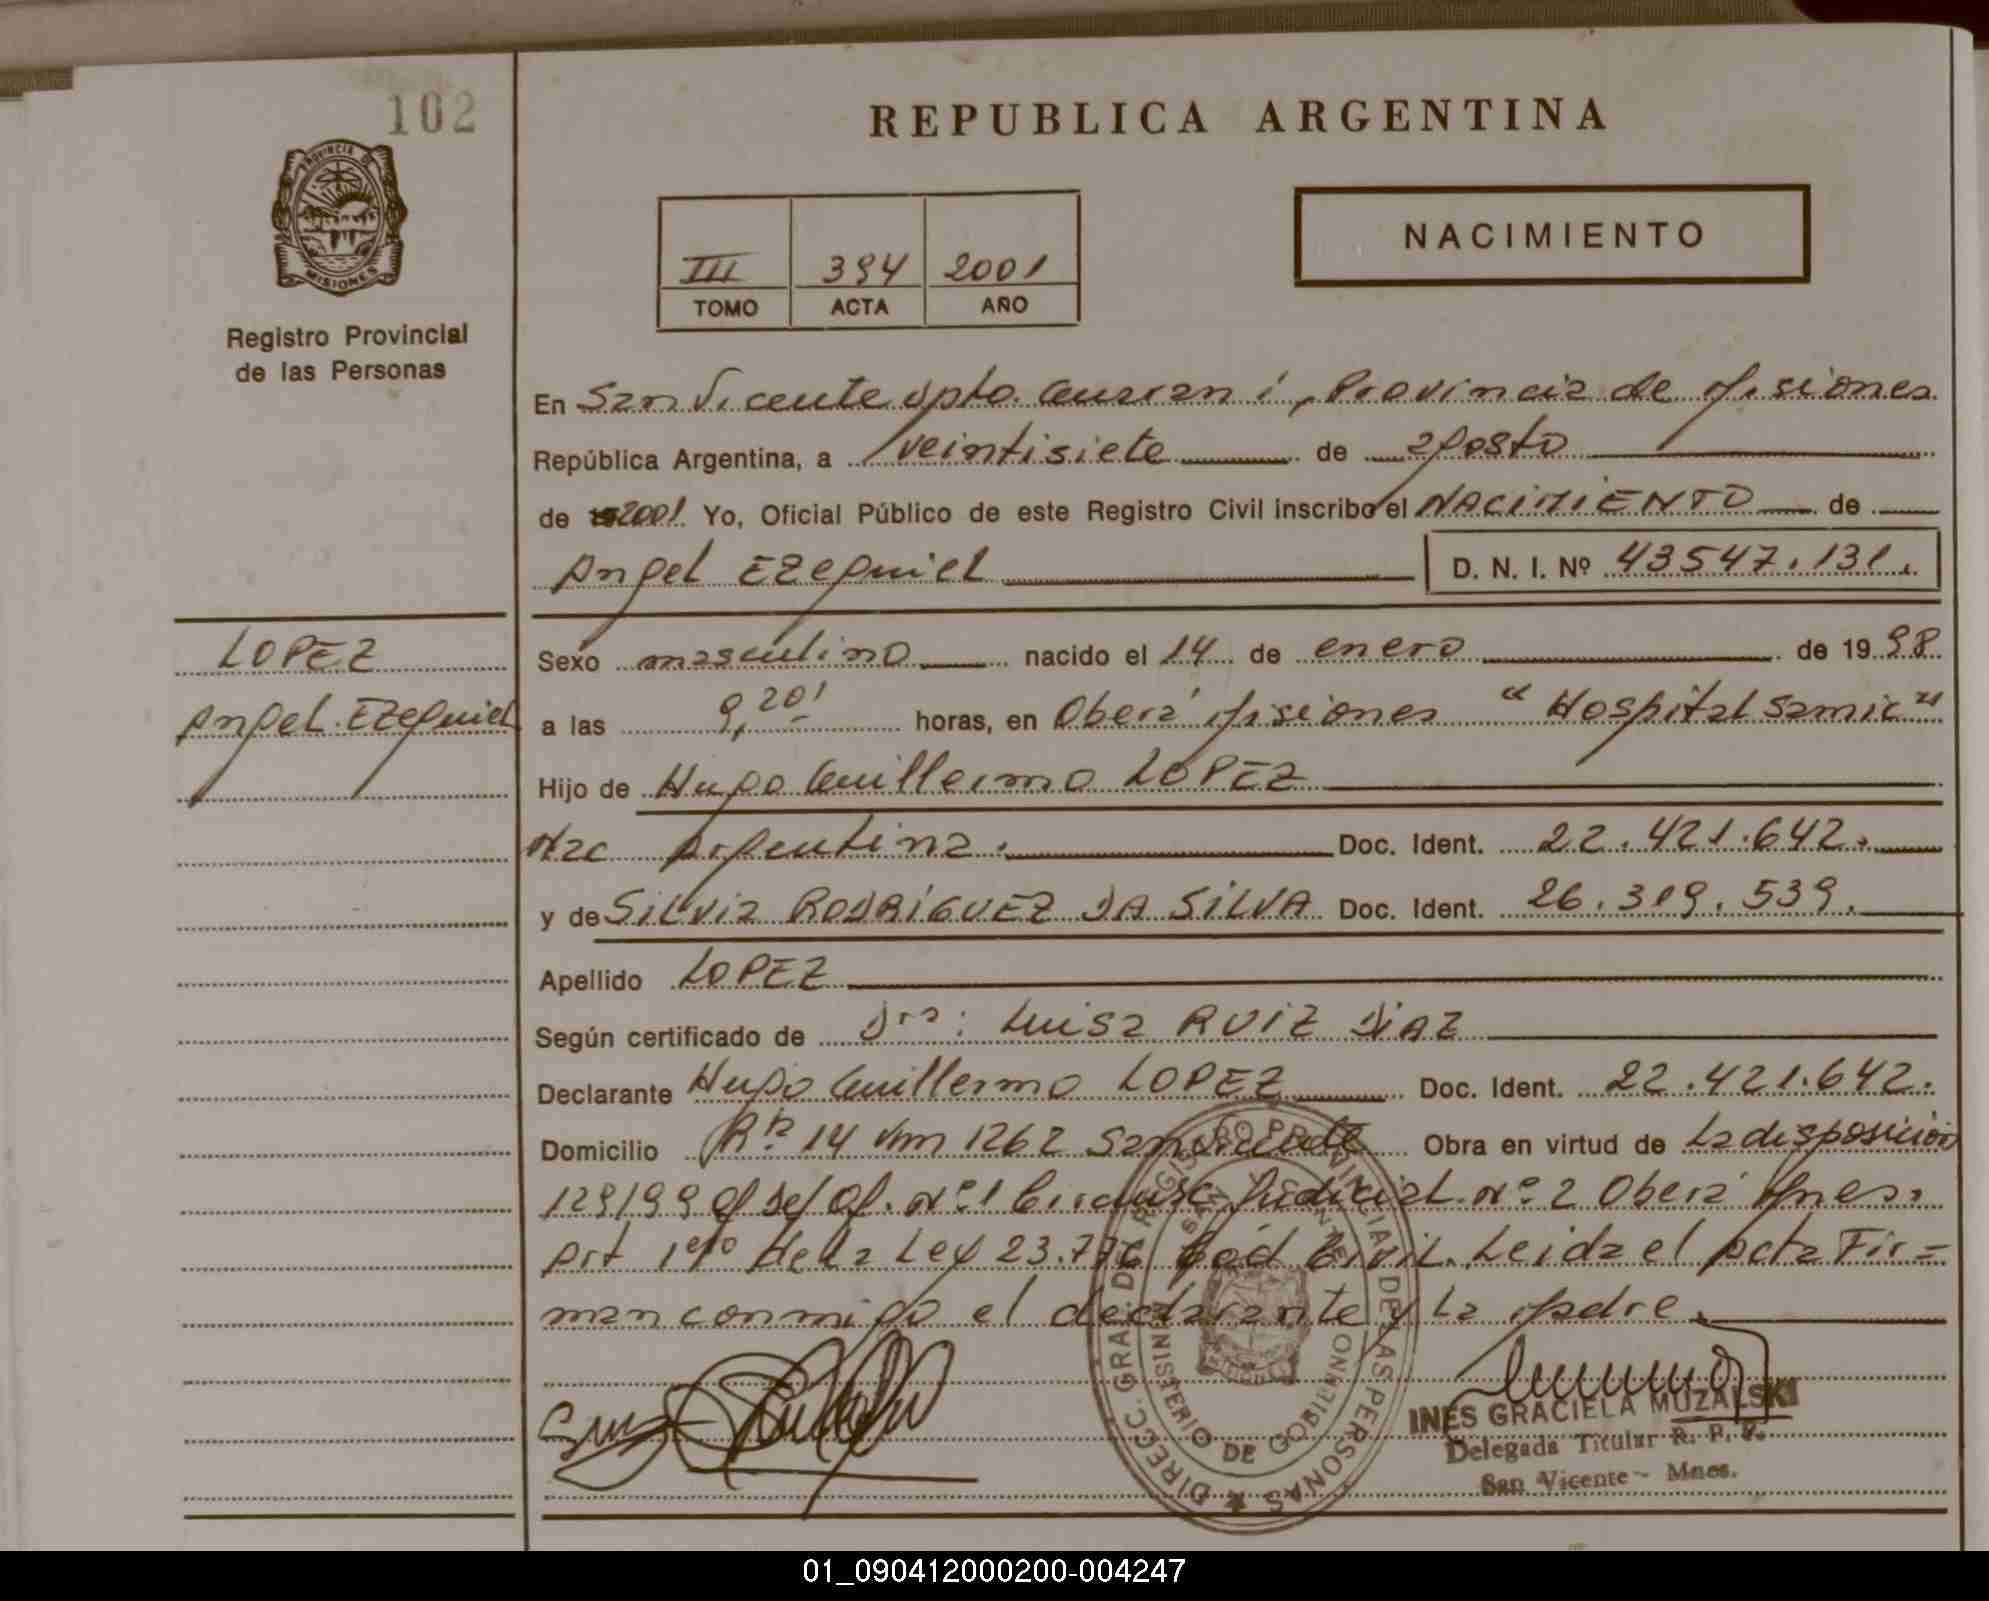 102
REPUBLICA ARGENTINA
PROVINCIA DE
MISIONES
Registro Provincial
de las Personas
III 394 2001
TOMO ACTA AÑO
NACIMIENTO
En San Vicente dpto. Guaraní, Provincia de Misiones
República Argentina, a veintisiete de agosto
de 2001. Yo, Oficial Público de este Registro Civil inscribo el NACIMIENTO de
Angel EZequiel D. N. I. Nº 43547.131.
LOPEZ
Angel EZequiel
Sexo masculino nacido el 14 de enero de 1998
a las 9,20' horas, en Oberá Misiones "Hospital Samic"
Hijo de Hugo Guillermo LOPEZ
Nac Argentina. Doc. Ident. 22.421.642.
y de SILVIA RODRIGUEZ DA SILVA Doc. Ident. 26.319.539.
Apellido LOPEZ
Según certificado de Dra: Luisa RUIZ DIAZ
Declarante Hugo Guillermo LOPEZ Doc. Ident. 22.421.642.
Domicilio Rta 14 Km 1262 San Vicente Obra en virtud de La disposición
129/99 Def. Of. Nº 1 Circunsc. Judicial Nº 2 Oberá Mnes.
Art 1ero de la Ley 23.776 Cód Civil. Leida el acta Fir=
man conmigo el declarante y La Madre.
DIRECC. GRAL. DEL REGISTRO PROVINCIAL DE LAS PERSONAS
MINISTERIO DE GOBIERNO
SAN VICENTE
INES GRACIELA MUZALSKI
Delegada Titular R. P. P.
San Vicente - Mnes.
01_090412000200-004247